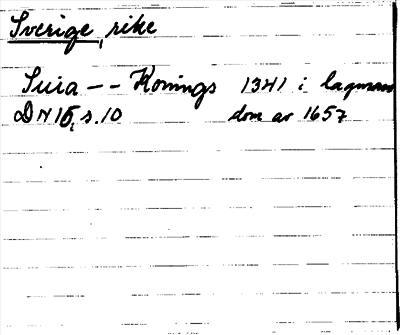 Sverige, rike
Suia -- Konings 1341 i lagmans
DN 16, s. 10 dom av 1657